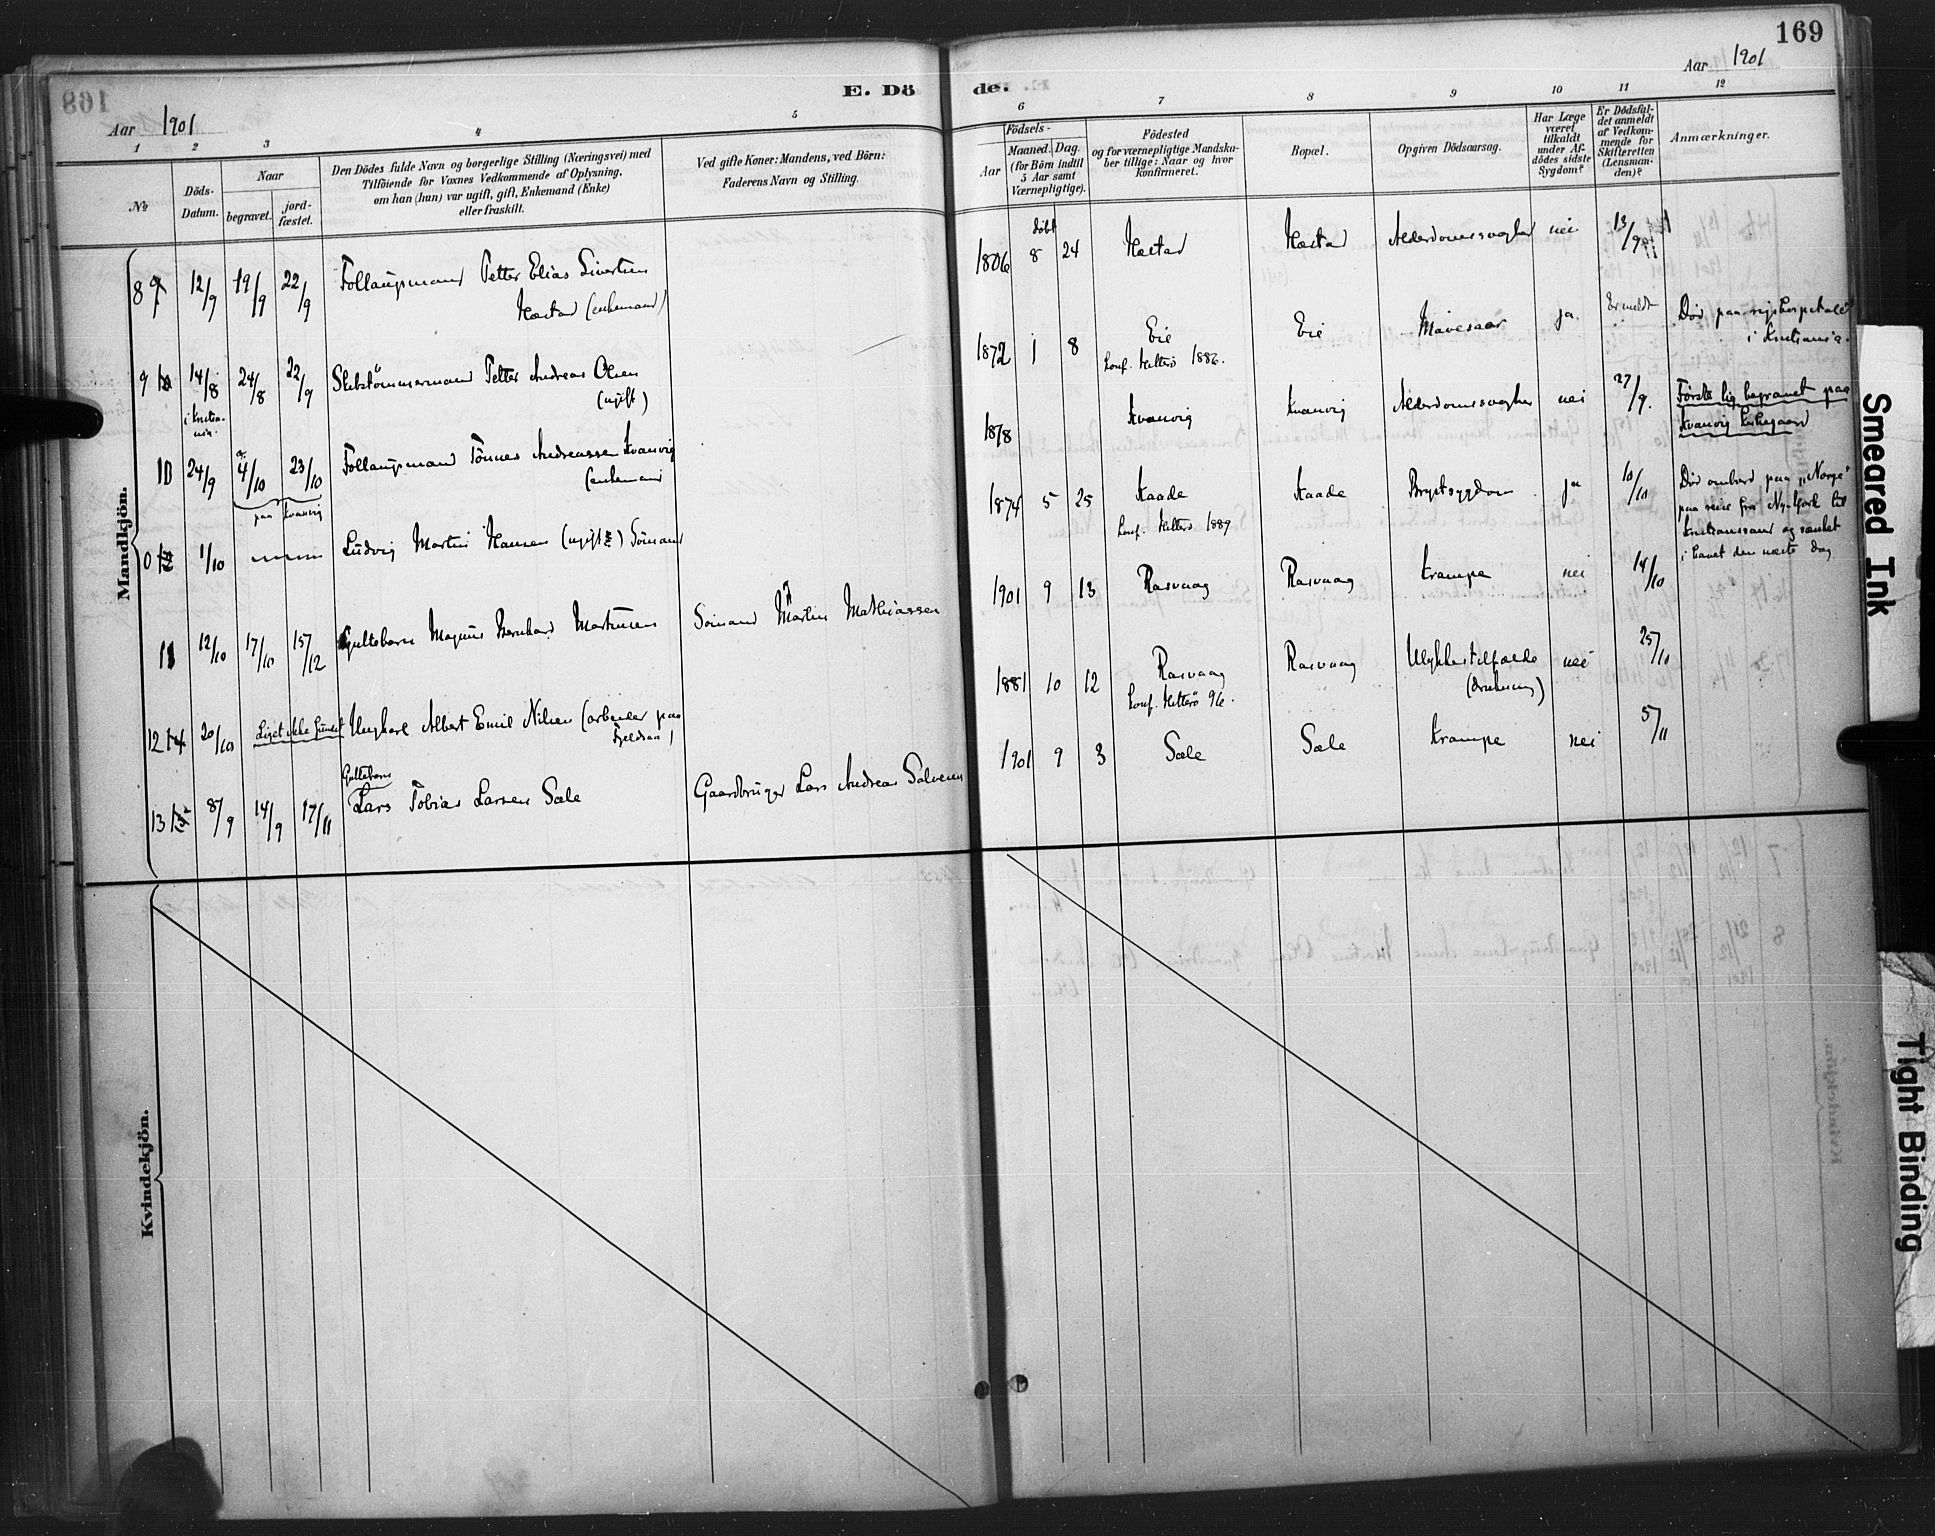 169
Aar 1901
E. Döde.
Aar 1901
1 2 3 4 5
№
Döds-Datum.
Naar
begravet.
jord-fæstet.
Den Dödes fulde Navn og borgerlige Stilling (Næringsvei) med
Tilföiende for Voxnes Vedkommende af Oplysning,
om han (hun) var ugift, gift, Enkemand (Enke)
eller fraskilt.
Ved gifte Koner: Mandens, ved Börn:
Faderens Navn og Stilling.
Mandkjön.
8 12/9 19/9 22/9 Follaugsmand Petter Elias Sivertsen
Hæstad (enkemand)
9 14/8 24/8 22/9 Petter Andreas Olsen
i Kristia-
nia.
(ugift)
10 24/9 4/10 23/10 Follaugsmand Tönnes Andreassen Kvanvig
(enkemand
paa Kvanvig
1/10 Ludvig Martin Hansen (ugift) Sömand
11 12/10 17/10 15/12 Guttebarn Magnus Bernhard Martinsen Sömand Martin Mathiassen
12 20/10 Liget ikke fundet Ungkarl Albert Emil Nilsen (arbeider paa
Fjeldsaa)
Guttebarn
13 8/9 14/9 17/11 Lars Tobias Larsen Sæle Gaardbruger Lars Andreas Salvesen
Kvindekjön.
6 7 8 9 10 11 12
Födsels-
Aar
Maaned. Dag.
(for Börn indtil
5 Aar samt
Værnepligtige).
Födested
og for værnepligtige Mandska-
ber tillige: Naar og hvor
konfirmeret.
Bopæl.
Opgiven Dödsaarsag.
Har Læge
været
tilkaldt
under Af-
dödes sidste
Sygdom?
Er Dödsfal-
det anmeldt
af Vedkom-
mende for
Skifteretten
(Lensman-
den)?
Anmærkninger.
döbt
1806 8 24 Hæstad Hæstad Alderdomssvaghed nei 13/9
1872 1 8 Eie Eie Mavesaar ja. Er meldt Död paa rigshospitalet
Konf. Hitterö 1886. i Kristiania.
1818 Kvanvig Kvanvig Alderdomssvaghed nei 27/9. Förste lig begravet paa
Kvanvig kirkegaard
1874 5 25 Kaade Kaade Brystsygdom ja 10/10 Död ombord paa „Norge"
Konf. Hitterö 1889 paa reise fra New York til
Kristianssand og sænket
i havet den næste dag
1901 9 13 Rasvaag Rasvaag Krampe nei 14/10
1881 10 12 Rasvaag Rasvaag Ulykkestilfælde nei 25/10
Konf. Hitterö 96. (drukning)
1901 9 3 Sæle Sæle Krampe nei 5/11
Smeared Ink
Tight Binding